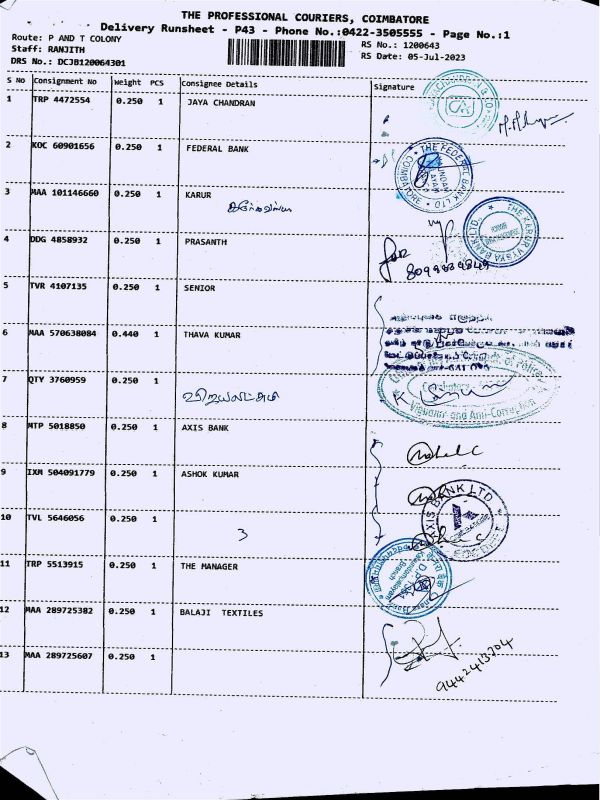 THE PROFESSIONAL COURIERS, COIMBATORE
Delivery Runsheet - P43 - Phone No.:0422-3505555 - Page No.:1
Route: P AND T COLONY
Staff: RANJITH
DRS No.: DCJB120064301
RS No.: 1200643
RS Date: 05-Jul-2023
S No Consignment No Weight PCS Consignee Details Signature
1 TRP 4472554 0.250 1 JAYA CHANDRAN
2 KOC 60901656 0.250 1 FEDERAL BANK
THE FEDERAL BANK LTD
3 MAA 101146660 0.250 1 KARUR
THE KARUR VYSYA BANK LTD.
4 DDG 4858932 0.250 1 PRASANTH
5 TVR 4107135 0.250 1 SENIOR
6 MAA 570638084 0.440 1 THAVA KUMAR
7 QTY 3760959 0.250 1
விஜயலட்சுமி
Vigilance and Anti-Corruption
8 MTP 5018850 0.250 1 AXIS BANK
9 IXM 504091779 0.250 1 ASHOK KUMAR
AXIS BANK LTD
10 TVL 5646056 0.250 1
3
11 TRP 5513915 0.250 1 THE MANAGER
12 MAA 289725382 0.250 1 BALAJI TEXTILES
13 MAA 289725607 0.250 1
9442413204